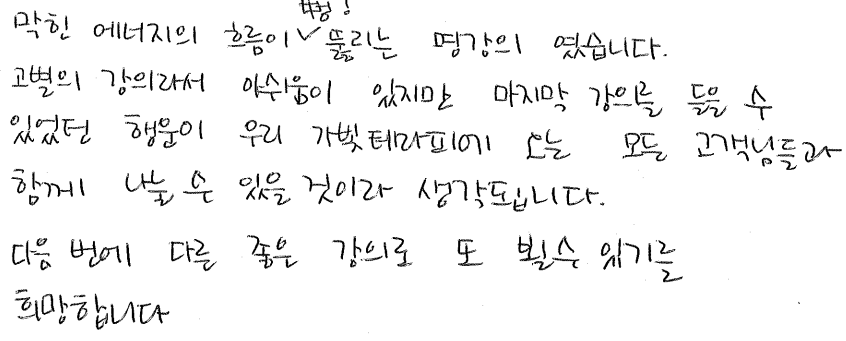 막힌 에너지의 흐름이 뻥! 뚫리는 명강의 였습니다.
고별의 강의라서 아쉬움이 있지만 마지막 강의를 들을 수
있었던 행운이 우리 가빛테라피에 오는 모든 고객님들과
함께 나눌 수 있을 것이라 생각됩니다.
다음 번에 다른 좋은 강의로 또 뵐수 있기를
희망합니다